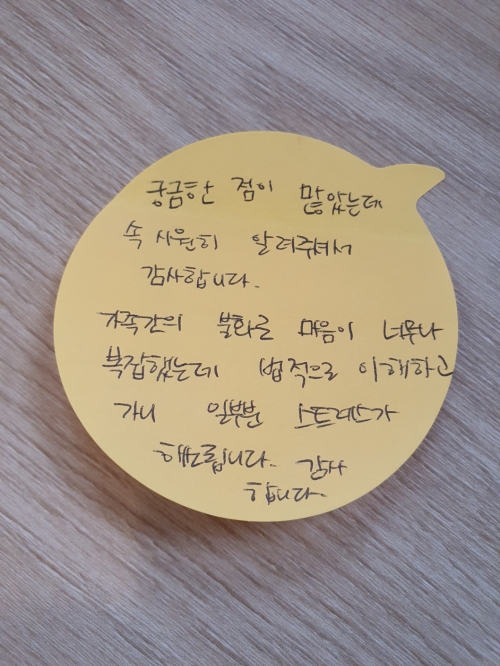 궁금한 점이 많았는데
속 시원히 알려주셔서
감사합니다.
가족간의 불화로 마음이 너무나
복잡했는데 법적으로 이해하고
가니 일부분 스트레스가
해소됩니다. 감사
합니다.